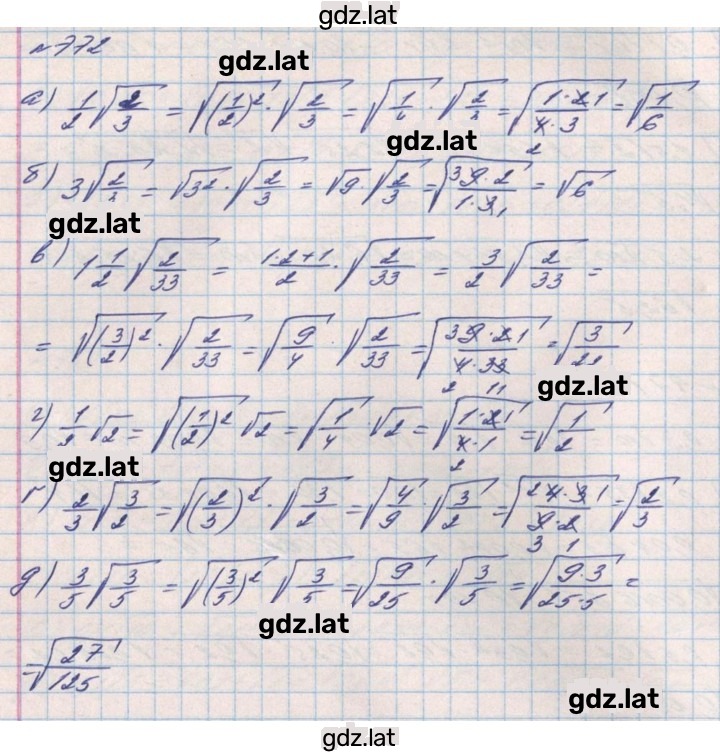 gdz.lat
№772
gdz.lat
а) 1/2 √(2/3) = √((1/2)²) · √(2/3) = √(1/4) · √(2/3) = √((1·2 1)/(4·3 2)) = √(1/6)
gdz.lat
б) 3√(2/3) = √3² · √(2/3) = √9 · √(2/3) = √((3 9·2)/(1·3 1)) = √6
gdz.lat
в) 1 1/2 √(2/33) = (1·2+1)/2 · √(2/33) = 3/2 √(2/33) =
= √((3/2)²) · √(2/33) = √(9/4) · √(2/33) = √((3 9·2 1)/(4·33 2 11)) = √(3/22)
gdz.lat
г) 1/2 √2 = √((1/2)²) √2 = √(1/4) · √2 = √((1·2 1)/(4·1 2)) = √(1/2)
gdz.lat
ґ) 2/3 √(3/2) = √((2/3)²) · √(3/2) = √(4/9) · √(3/2) = √((2 4·3 1)/(9·2 3 1)) = √(2/3)
д) 3/5 √(3/5) = √((3/5)²) √(3/5) = √(9/25) · √(3/5) = √((9·3)/(25·5)) =
gdz.lat
= √(27/125)
gdz.lat
gdz.lat